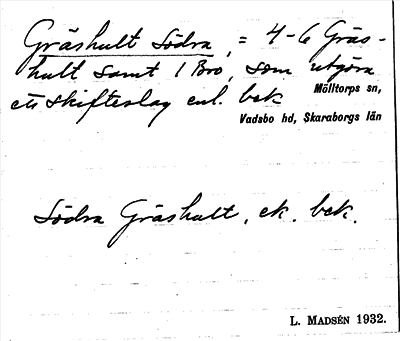 Gräshult Södra, = 4-6 Gräs-
hult samt 1 Bro, som utgöra
ett skifteslag enl. bek
Mölltorps sn,
Vadsbo hd, Skaraborgs län
Södra Gräshult, ek. bek.
L. MADSÉN 1932.